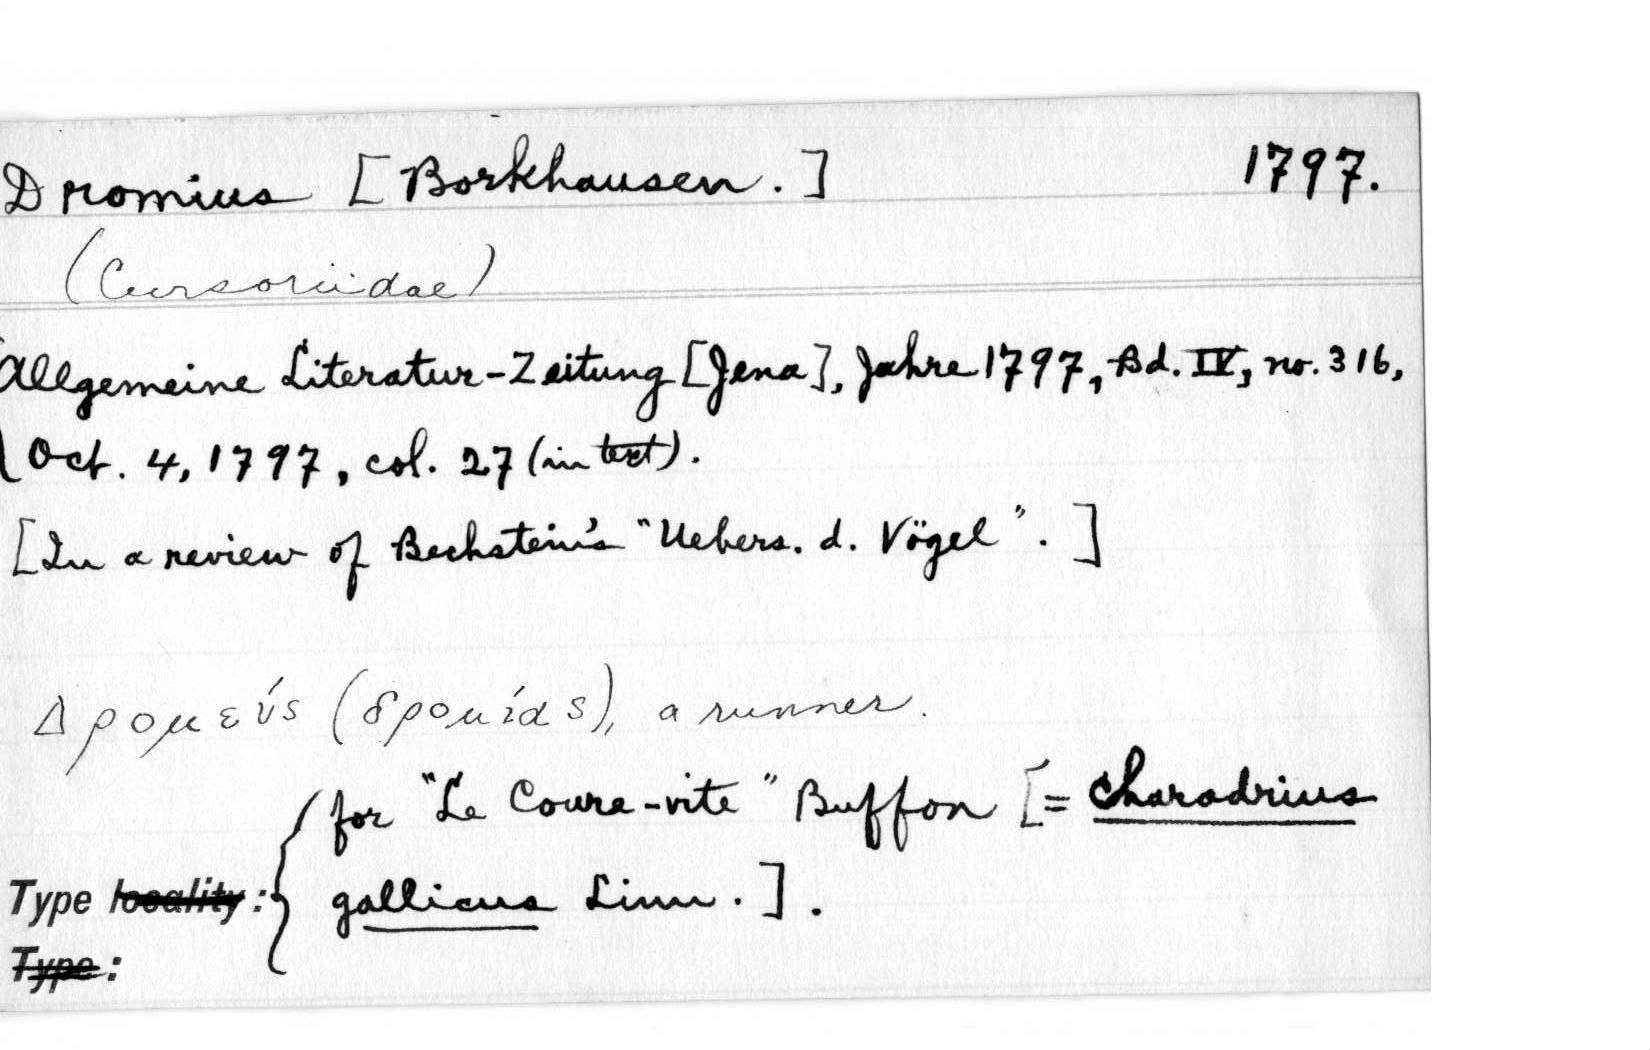 Dromius [Borkhausen.] 1797.
(Cursoriidae)
Allgemeine Literatur-Zeitung [Jena], Jahre 1797, Bd. IV, no. 316,
Oct. 4, 1797, col. 27 (in text).
[In a review of Bechstein's "Uebers. d. Vögel".]
Δρομεύs (δρομίας), a runner.
for "Le Coure-vite" Buffon [= Charadrius
Type locality: gallicus Linn.].
Type: